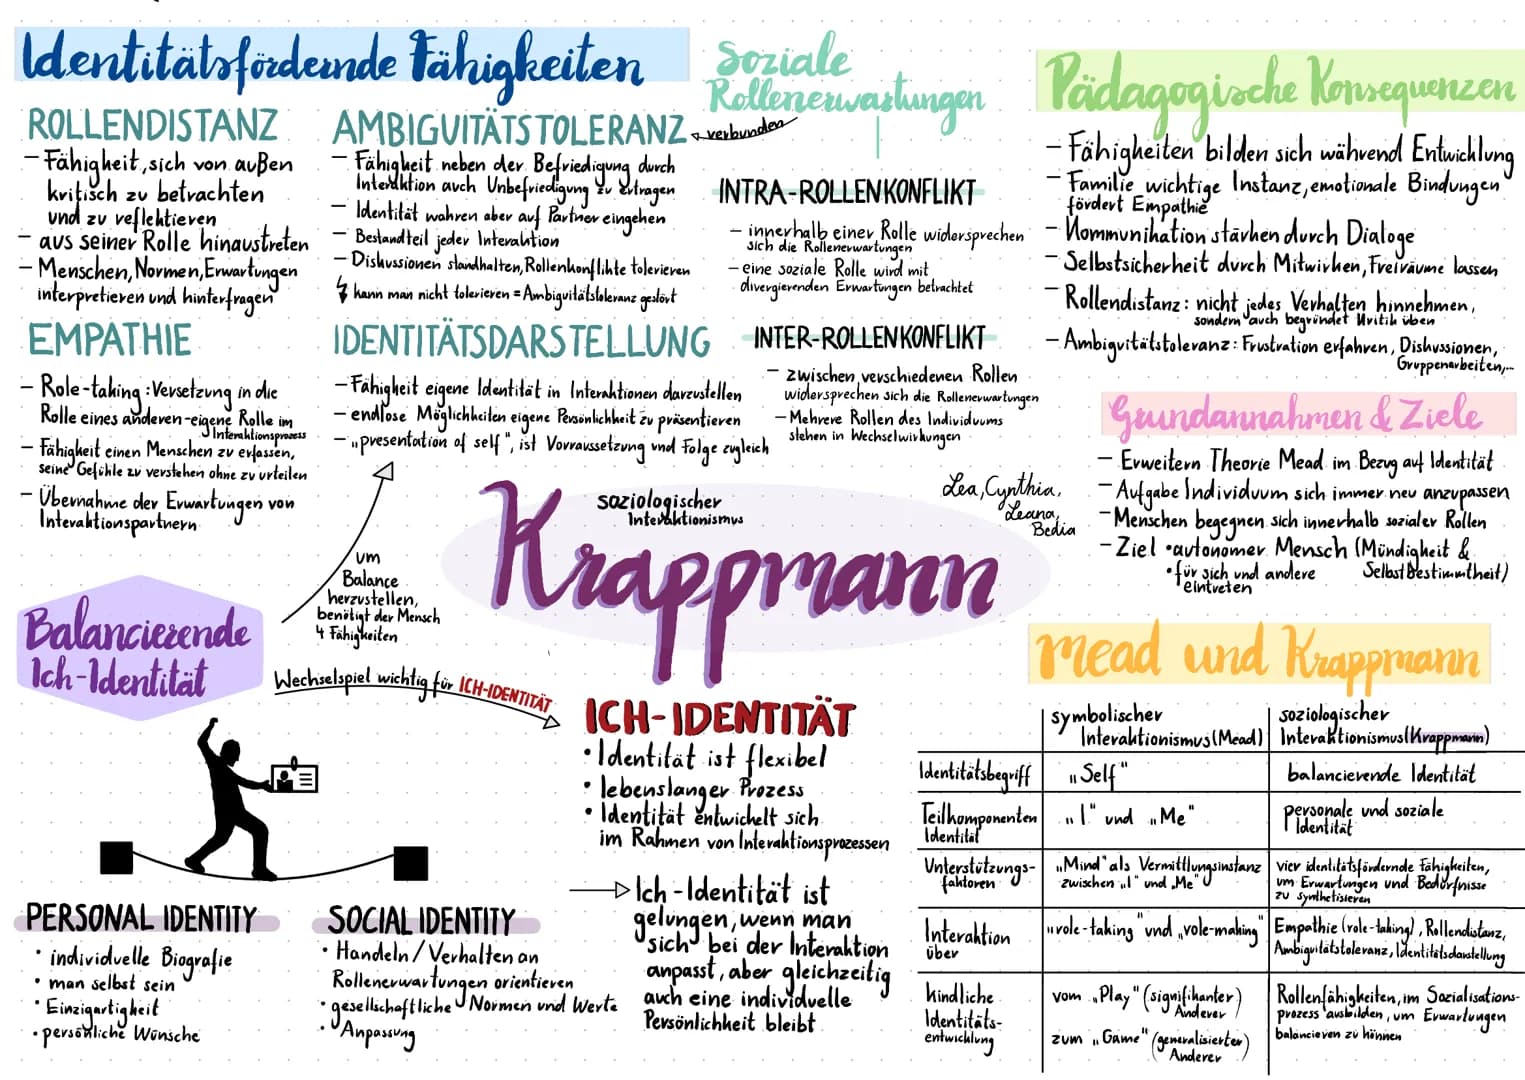 Identitätsfördernde Fähigkeiten
ROLLENDISTANZ
- Fähigkeit, sich von außen
kritisch zu betrachten
und zu reflektieren
- aus seiner Rolle hinaustreten
- Menschen, Normen, Erwartungen
interpretieren und hinterfragen
AMBIGUITÄTSTOLERANZ
- Fähigkeit neben der Befriedigung durch
Interaktion auch Unbefriedigung zu ertragen
- Identität wahren aber auf Partner eingehen
- Bestandteil jeder Interaktion
- Diskussionen standhalten, Rollenkonflikte tolerieren
kann man nicht tolerieren = Ambiguitätstoleranz gestört
EMPATHIE
- Role-taking: Versetzung in die
Rolle eines anderen - eigene Rolle im
Interaktionsprozess
- Fähigkeit einen Menschen zu erfassen,
seine Gefühle zu verstehen ohne zu urteilen
- Übernahme der Erwartungen von
Interaktionspartnern
IDENTITÄTSDARSTELLUNG
- Fähigkeit eigene Identität in Interaktionen darzustellen
- endlose Möglichkeiten eigene Persönlichkeit zu präsentieren
- „presentation of self", ist Vorraussetzung und Folge zugleich
Soziale
Rollenerwartungen
verbunden
INTRA-ROLLENKONFLIKT
- innerhalb einer Rolle widersprechen
sich die Rollenerwartungen
- eine soziale Rolle wird mit
divergierenden Erwartungen betrachtet
INTER-ROLLENKONFLIKT
- zwischen verschiedenen Rollen
widersprechen sich die Rollenerwartungen
- Mehrere Rollen des Individuums
stehen in Wechselwirkungen
Pädagogische Konsequenzen
- Fähigkeiten bilden sich während Entwicklung
- Familie wichtige Instanz, emotionale Bindungen
fördert Empathie
- Kommunikation stärken durch Dialoge
- Selbstsicherheit durch Mitwirken, Freiräume lassen
- Rollendistanz: nicht jedes Verhalten hinnehmen,
sondern auch begründet Kritik üben
- Ambiguitätstoleranz: Frustration erfahren, Diskussionen,
Gruppenarbeiten,...
Grundannahmen & Ziele
- Erweitern Theorie Mead im Bezug auf Identität
- Aufgabe Individuum sich immer neu anzupassen
- Menschen begegnen sich innerhalb sozialer Rollen
- Ziel • autonomer Mensch (Mündigkeit &
Selbstbestimmtheit)
• für sich und andere
eintreten
Lea, Cynthia,
Leana,
Bedia
soziologischer
Interaktionismus
Krappmann
Balancierende
Ich-Identität
um
Balance
herzustellen,
benötigt der Mensch
4 Fähigkeiten
Wechselspiel wichtig für ICH-IDENTITÄT
PERSONAL IDENTITY
• individuelle Biografie
• man selbst sein
• Einzigartigkeit
• persönliche Wünsche
SOCIAL IDENTITY
• Handeln/Verhalten an
Rollenerwartungen orientieren
• gesellschaftliche Normen und Werte
• Anpassung
ICH-IDENTITÄT
• Identität ist flexibel
• lebenslanger Prozess
• Identität entwickelt sich
im Rahmen von Interaktionsprozessen
Ich-Identität ist
gelungen, wenn man
sich bei der Interaktion
anpasst, aber gleichzeitig
auch eine individuelle
Persönlichkeit bleibt
Mead und Krappmann
symbolischer
Interaktionismus (Mead)
soziologischer
Interaktionismus (Krappmann)
Identitätsbegriff
„Self"
balancierende Identität
Teilkomponenten
Identität
„I" und „Me"
personale und soziale
Identität
Unterstützungs-
faktoren
„Mind" als Vermittlungsinstanz
zwischen „I" und „Me"
vier identitätsfördernde Fähigkeiten,
um Erwartungen und Bedürfnisse
zu synthetisieren
Interaktion
über
„role-taking" und „role-making"
Empathie (role-taking), Rollendistanz,
Ambiguitätstoleranz, Identitätsdarstellung
kindliche
Identitäts-
entwicklung
vom „Play" (signifikanter
Anderer)
zum „Game" (generalisierter
Anderer)
Rollenfähigkeiten, im Sozialisations-
prozess ausbilden, um Erwartungen
balancieren zu können